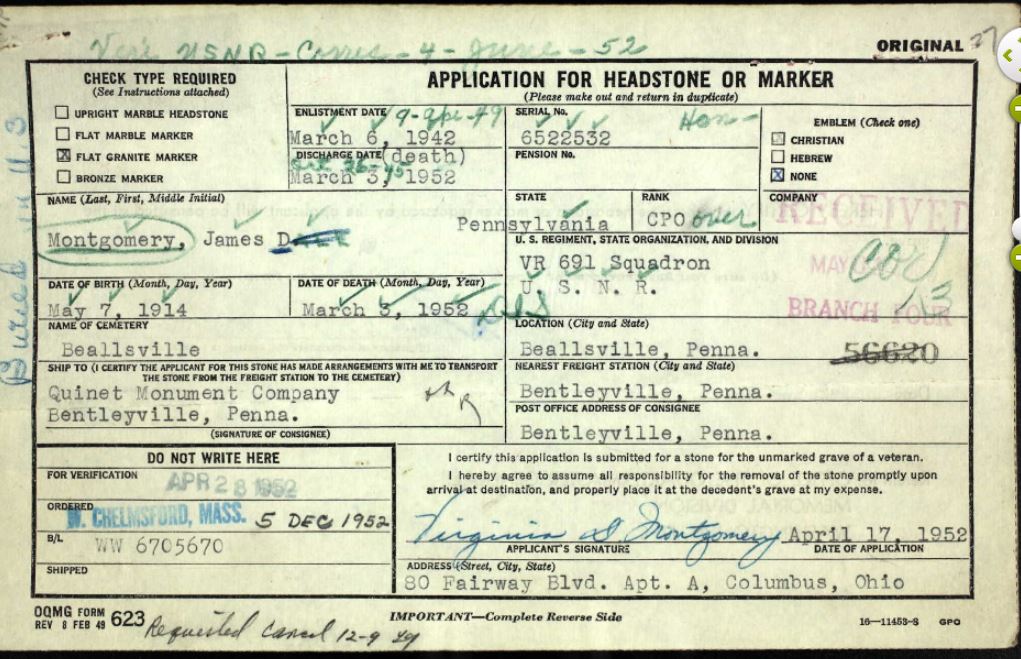 USNR - Corres - 4 - June - 52
ORIGINAL 27
CHECK TYPE REQUIRED
(See Instructions attached)
UPRIGHT MARBLE HEADSTONE
FLAT MARBLE MARKER
FLAT GRANITE MARKER
BRONZE MARKER
APPLICATION FOR HEADSTONE OR MARKER
(Please make out and return in duplicate)
ENLISTMENT DATE
March 6, 1942
DISCHARGE DATE (death)
March 3, 1952
SERIAL No.
6522532
PENSION No.
EMBLEM (Check one)
CHRISTIAN
HEBREW
NONE
NAME (Last, First, Middle Initial)
Montgomery, James D
STATE
Pennsylvania
RANK
CPO over
COMPANY
RECEIVED
MAY
BRANCH FOUR
U. S. REGIMENT, STATE ORGANIZATION, AND DIVISION
VR 691 Squadron
U. S. N. R.
DATE OF BIRTH (Month, Day, Year)
May 7, 1914
DATE OF DEATH (Month, Day, Year)
March 3, 1952
NAME OF CEMETERY
Beallsville
LOCATION (City and State)
Beallsville, Penna.
56620
SHIP TO (I CERTIFY THE APPLICANT FOR THIS STONE HAS MADE ARRANGEMENTS WITH ME TO TRANSPORT
THE STONE FROM THE FREIGHT STATION TO THE CEMETERY)
Quinet Monument Company
Bentleyville, Penna.
(SIGNATURE OF CONSIGNEE)
NEAREST FREIGHT STATION (City and State)
Bentleyville, Penna.
POST OFFICE ADDRESS OF CONSIGNEE
Bentleyville, Penna.
DO NOT WRITE HERE
FOR VERIFICATION
APR 28 1952
ORDERED
W. CHELMSFORD, MASS. 5 DEC 1952
B/L
WW 6705670
SHIPPED
I certify this application is submitted for a stone for the unmarked grave of a veteran.
I hereby agree to assume all responsibility for the removal of the stone promptly upon
arrival at destination, and properly place it at the decedent's grave at my expense.
Virginia S Montgomery April 17, 1952
APPLICANT'S SIGNATURE DATE OF APPLICATION
ADDRESS (Street, City, State)
80 Fairway Blvd. Apt. A, Columbus, Ohio
OQMG FORM
REV 8 FEB 49 623
IMPORTANT—Complete Reverse Side
16—11453-8 GPO
Requested Cancel 12-9